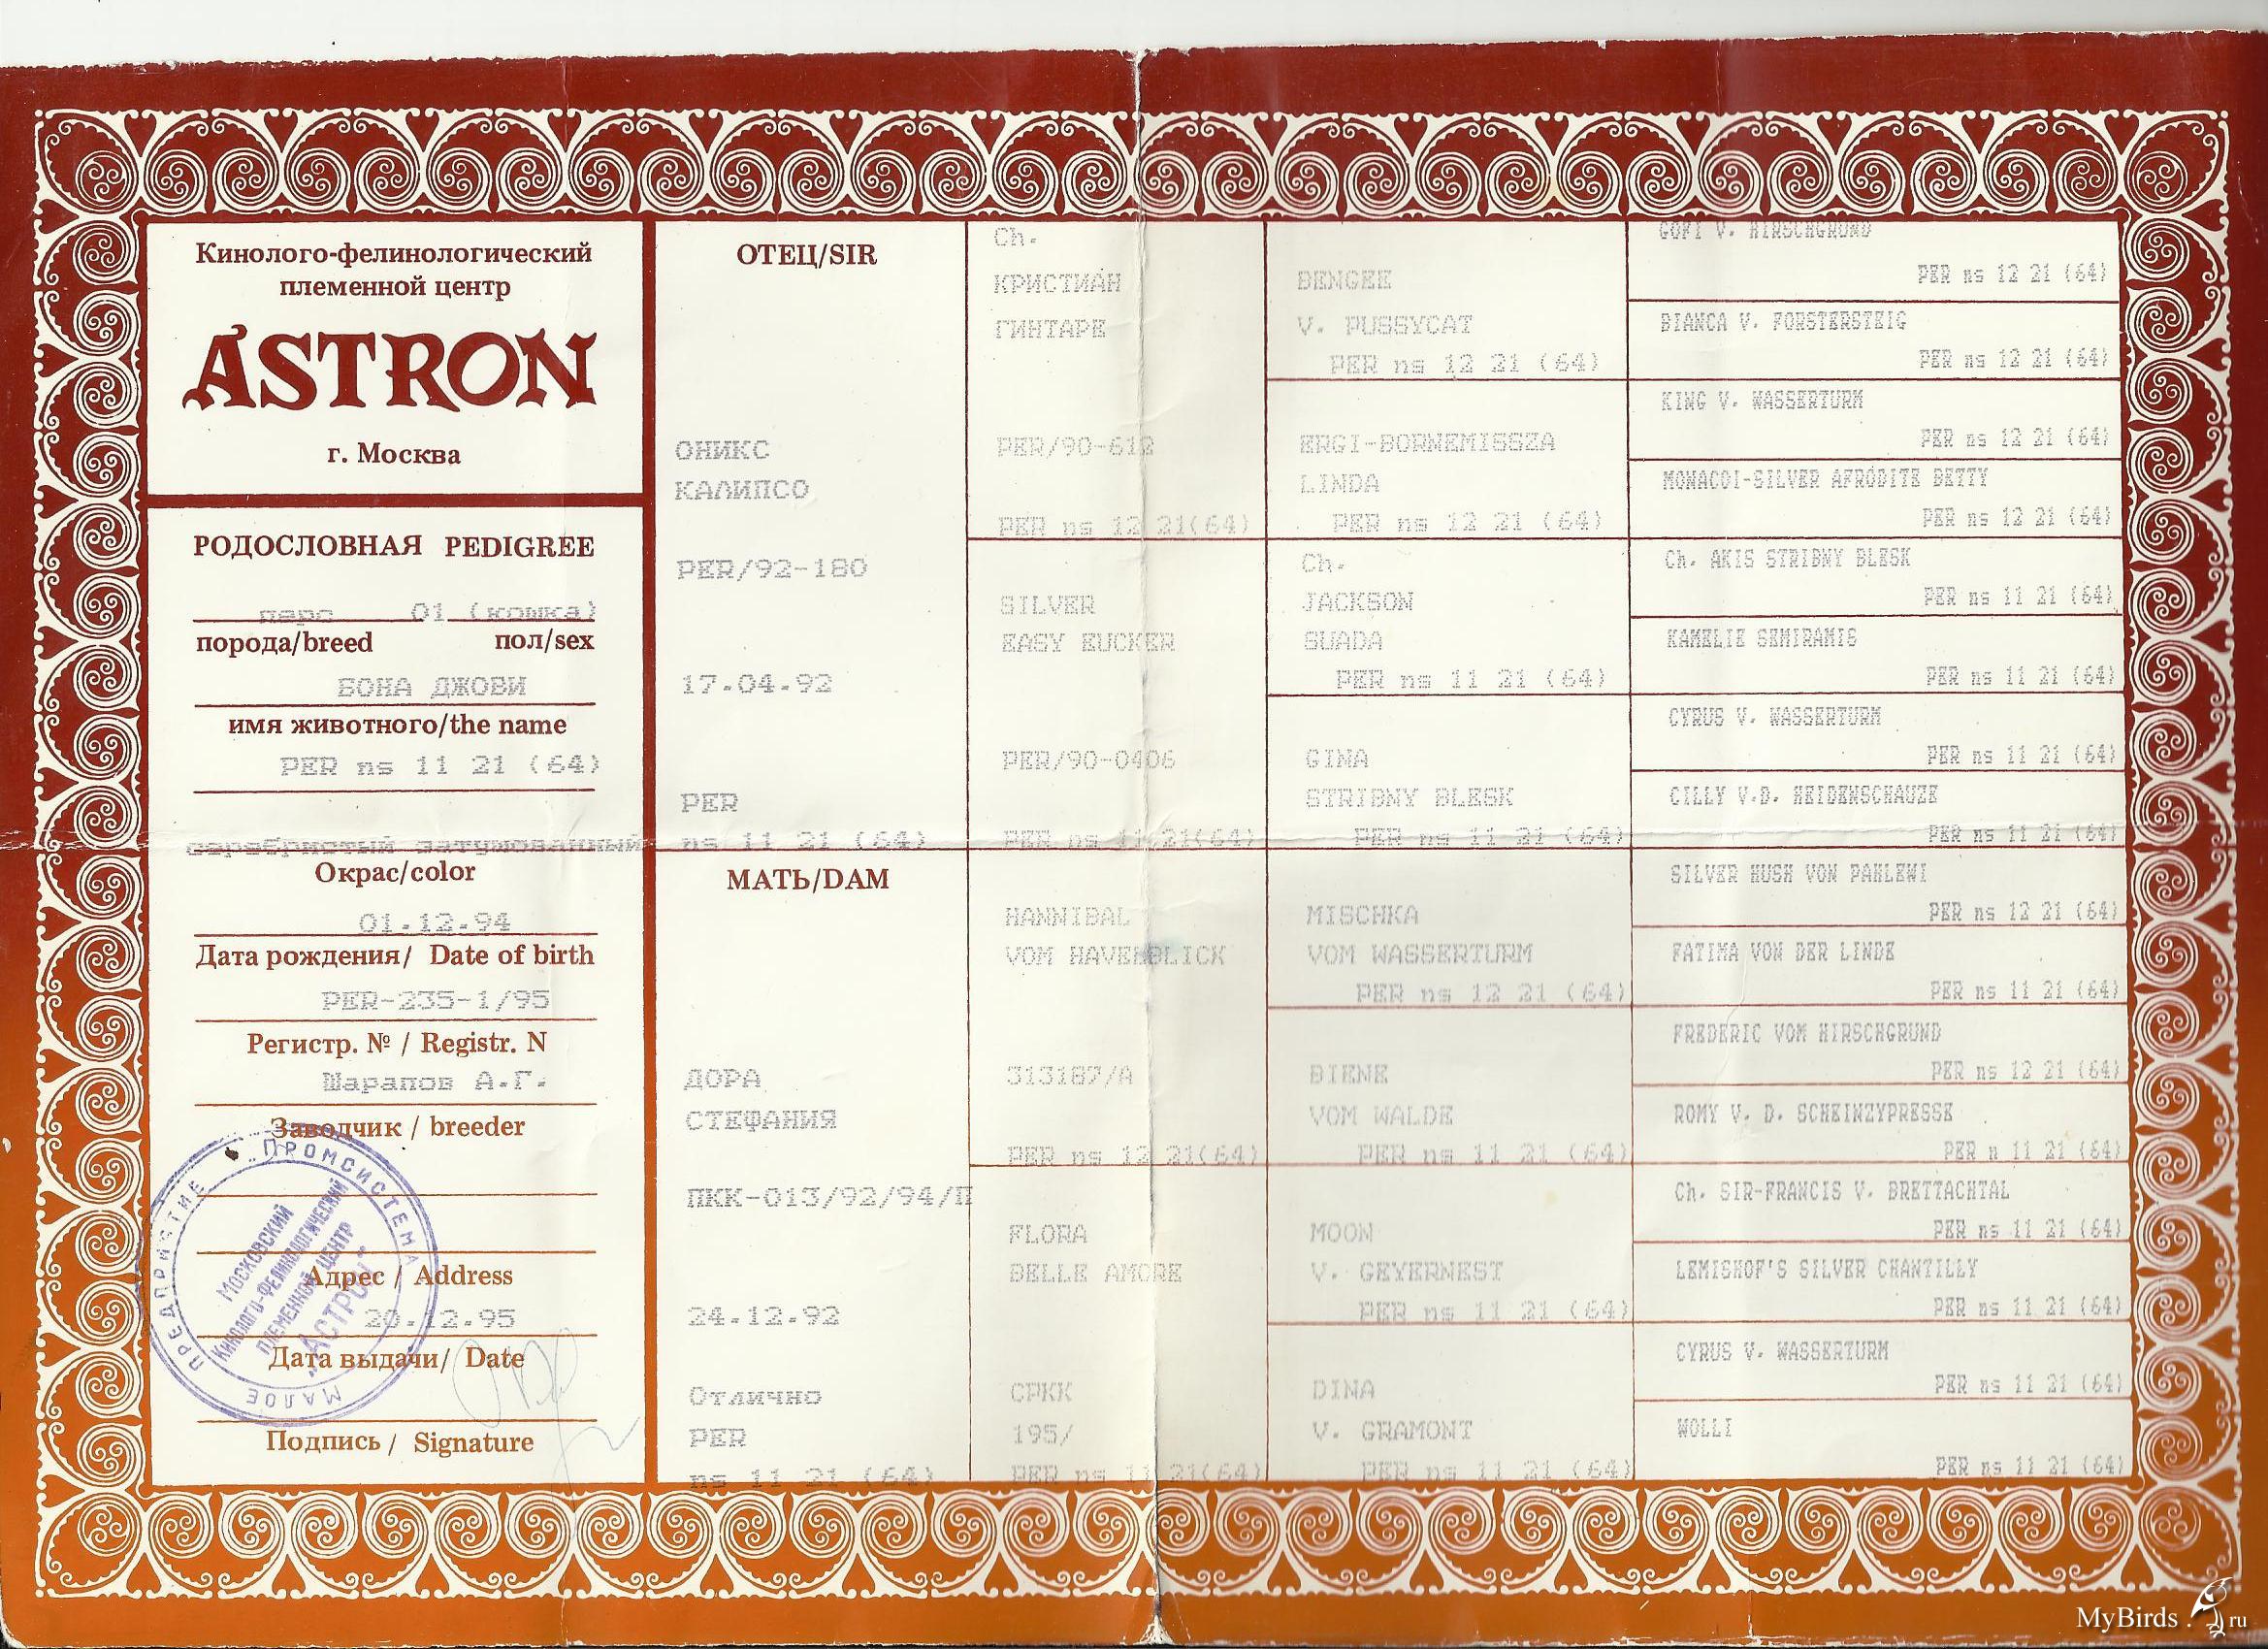 Кинолого-фелинологический
племенной центр
ASTRON
г. Москва
РОДОСЛОВНАЯ PEDIGREE
перс 01 (кошка)
порода/breed пол/sex
БОНА ДЖОВИ
имя животного/the name
PER ns 11 21 (64)
серебристый затушованный
Окрас/color
01.12.94
Дата рождения/ Date of birth
PER-235-1/95
Регистр. № / Registr. N
Шарапов А.Г.
Заводчик / breeder
Адрес / Address
20.12.95
Дата выдачи/ Date
Подпись / Signature
МАЛОЕ ПРЕДПРИЯТИЕ „ПРОМСИСТЕМА
МОСКОВСКИЙ
КИНОЛОГО-ФЕЛИНОЛОГИЧЕСКИЙ
ПЛЕМЕННОЙ ЦЕНТР
„АСТРОН"
ОТЕЦ/SIR
ОНИКС
КАЛИПСО
PER/92-180
17.04.92
PER
ns 11 21 (64)
МАТЬ/DAM
ДОРА
СТЕФАНИЯ
ПКК-013/92/94/П
24.12.92
Отлично
PER
ns 11 21 (64)
Ch.
КРИСТИАН
ГИНТАРЕ
PER/90-612
PER ns 12 21(64)
SILVER
EASY EUCKER
PER/90-0406
PER ns 11 21(64)
HANNIBAL
VOM HAVENBLICK
313187/A
PER ns 12 21(64)
FLORA
BELLE AMORE
СРКК
195/
PER ns 11 21(64)
BENGEE
V. PUSSYCAT
PER ns 12 21 (64)
ERGI-BORNEMISSZA
LINDA
PER ns 12 21 (64)
Ch.
JACKSON
SUADA
PER ns 11 21 (64)
GINA
STRIBNY BLESK
PER ns 11 21 (64)
MISCHKA
VOM WASSERTURM
PER ns 12 21 (64)
BIENE
VOM WALDE
PER ns 11 21 (64)
MOON
V. GEYERNEST
PER ns 11 21 (64)
DINA
V. GRAMONT
PER ns 11 21 (64)
GOFI V. HIRSCHGRUND
PER ns 12 21 (64)
BIANCA V. FORSTERSTEIG
PER ns 12 21 (64)
KING V. WASSERTURM
PER ns 12 21 (64)
MONACOI-SILVER AFRODITE BETTY
PER ns 12 21 (64)
Ch. AKIS STRIBNY BLESK
PER ns 11 21 (64)
KAMELIE SEMIRAMIS
PER ns 11 21 (64)
CYRUS V. WASSERTURM
PER ns 11 21 (64)
CILLY V.D. HEIDENSCHAUZE
PER ns 11 21 (64)
SILVER HUSH VON PAHLEWI
PER ns 12 21 (64)
FATIMA VON DER LINDE
PER ns 11 21 (64)
FREDERIC VOM HIRSCHGRUND
PER ns 12 21 (64)
ROMY V. D. SCHEINZYPRESSE
PER n 11 21 (64)
Ch. SIR-FRANCIS V. BRETTACHTAL
PER ns 11 21 (64)
LEMISHOF'S SILVER CHANTILLY
PER ns 11 21 (64)
CYRUS V. WASSERTURM
PER ns 11 21 (64)
WOLLI
PER ns 11 21 (64)
MyBirds.ru